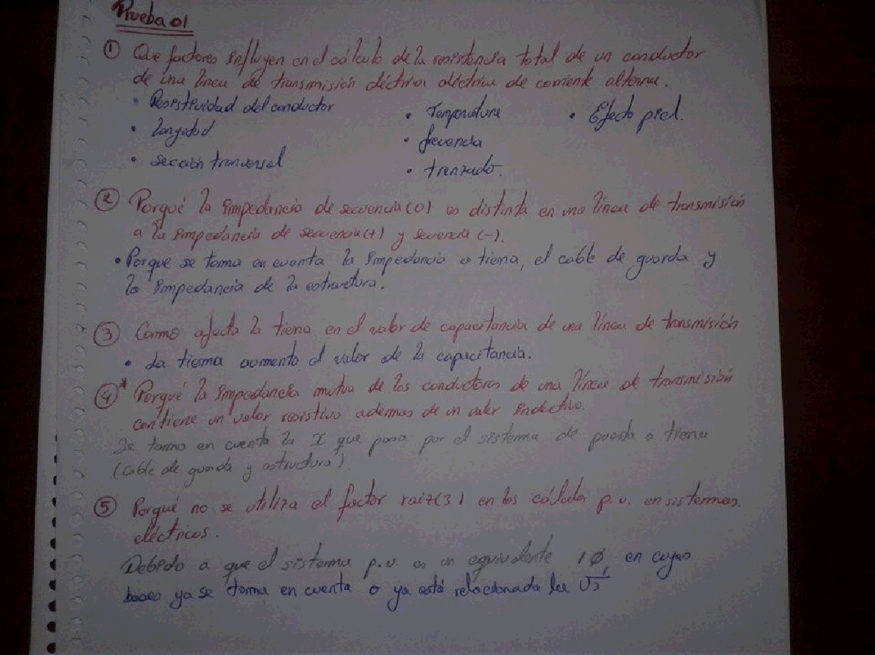 Prueba 01
① Que factores influyen en el cálculo de la resistencia total de un conductor
de una línea de transmisión eléctrica de corriente alterna.
• Resistividad del conductor • Temperatura • Efecto piel.
• Longitud • frecuencia
• sección tranversal • trenzado.
② Porqué la impedancia de secuencia (0) es distinta en una línea de transmisión
a la impedancia de secuencia (+) y secuencia (-).
• Porque se toma en cuenta la impedancia a tierra, el cable de guarda y
la impedancia de la estructura.
③ Como afecta la tierra en el valor de capacitancia de una línea de transmisión
• La tierra aumenta el valor de la capacitancia.
④ Porqué la impedancia mutua de los conductores de una línea de transmisión
contiene un valor resistivo ademas de un valor inductivo.
Se toma en cuenta la I que pasa por el sistema de puesta a tierra
(cable de guarda y estructura)
⑤ Porqué no se utiliza el factor raiz(3) en los cálculos p.u. en sistemas
eléctricos.
Debido a que el sistema p.u. es un equivalente 1Ø, en cuyas
bases ya se toma en cuenta o ya está relacionada la √3